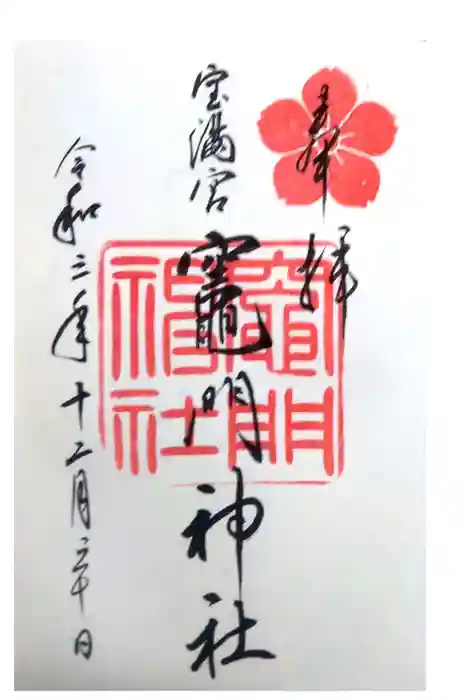 奉拝
宝満宮
竈門神社
竈門
神社
令和三年十二月二十日